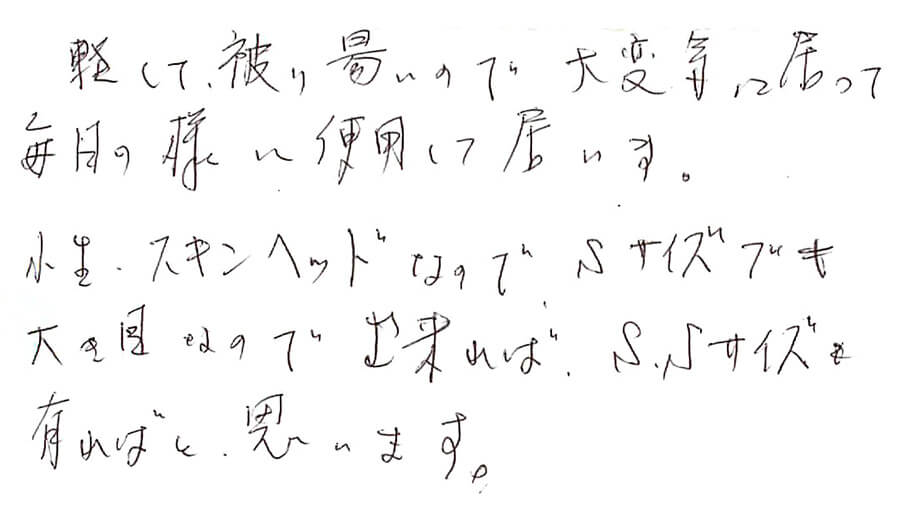 軽くて、被り易いので大変気に居って
毎日の様に使用して居います。
小生、スキンヘッドなので、Sサイズでも
大き目なので出来れば、S.Sサイズも
有ればと、思います。